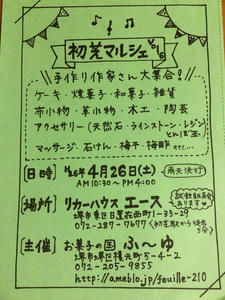 初芝マルシェ vol.6
手作り作家さん大集合!
ケーキ・焼菓子・和菓子・雑貨
布小物・革小物・木工・陶芸
アクセサリー(天然石・ラインストーン・レジン
とんぼ玉
マッサージ・石けん・梅干・梅酢 etc...
【日時】 H26年4月26日(土) 雨天決行
AM10:30〜PM4:00
【場所】 リカーハウス エース
堺市東区日置荘西町1-33-29
072-287-9677
初芝駅から徒歩
5分
【主催】 お菓子の国 ふ〜ゆ
072-205-9855
http://ameblo.jp/feuille-210